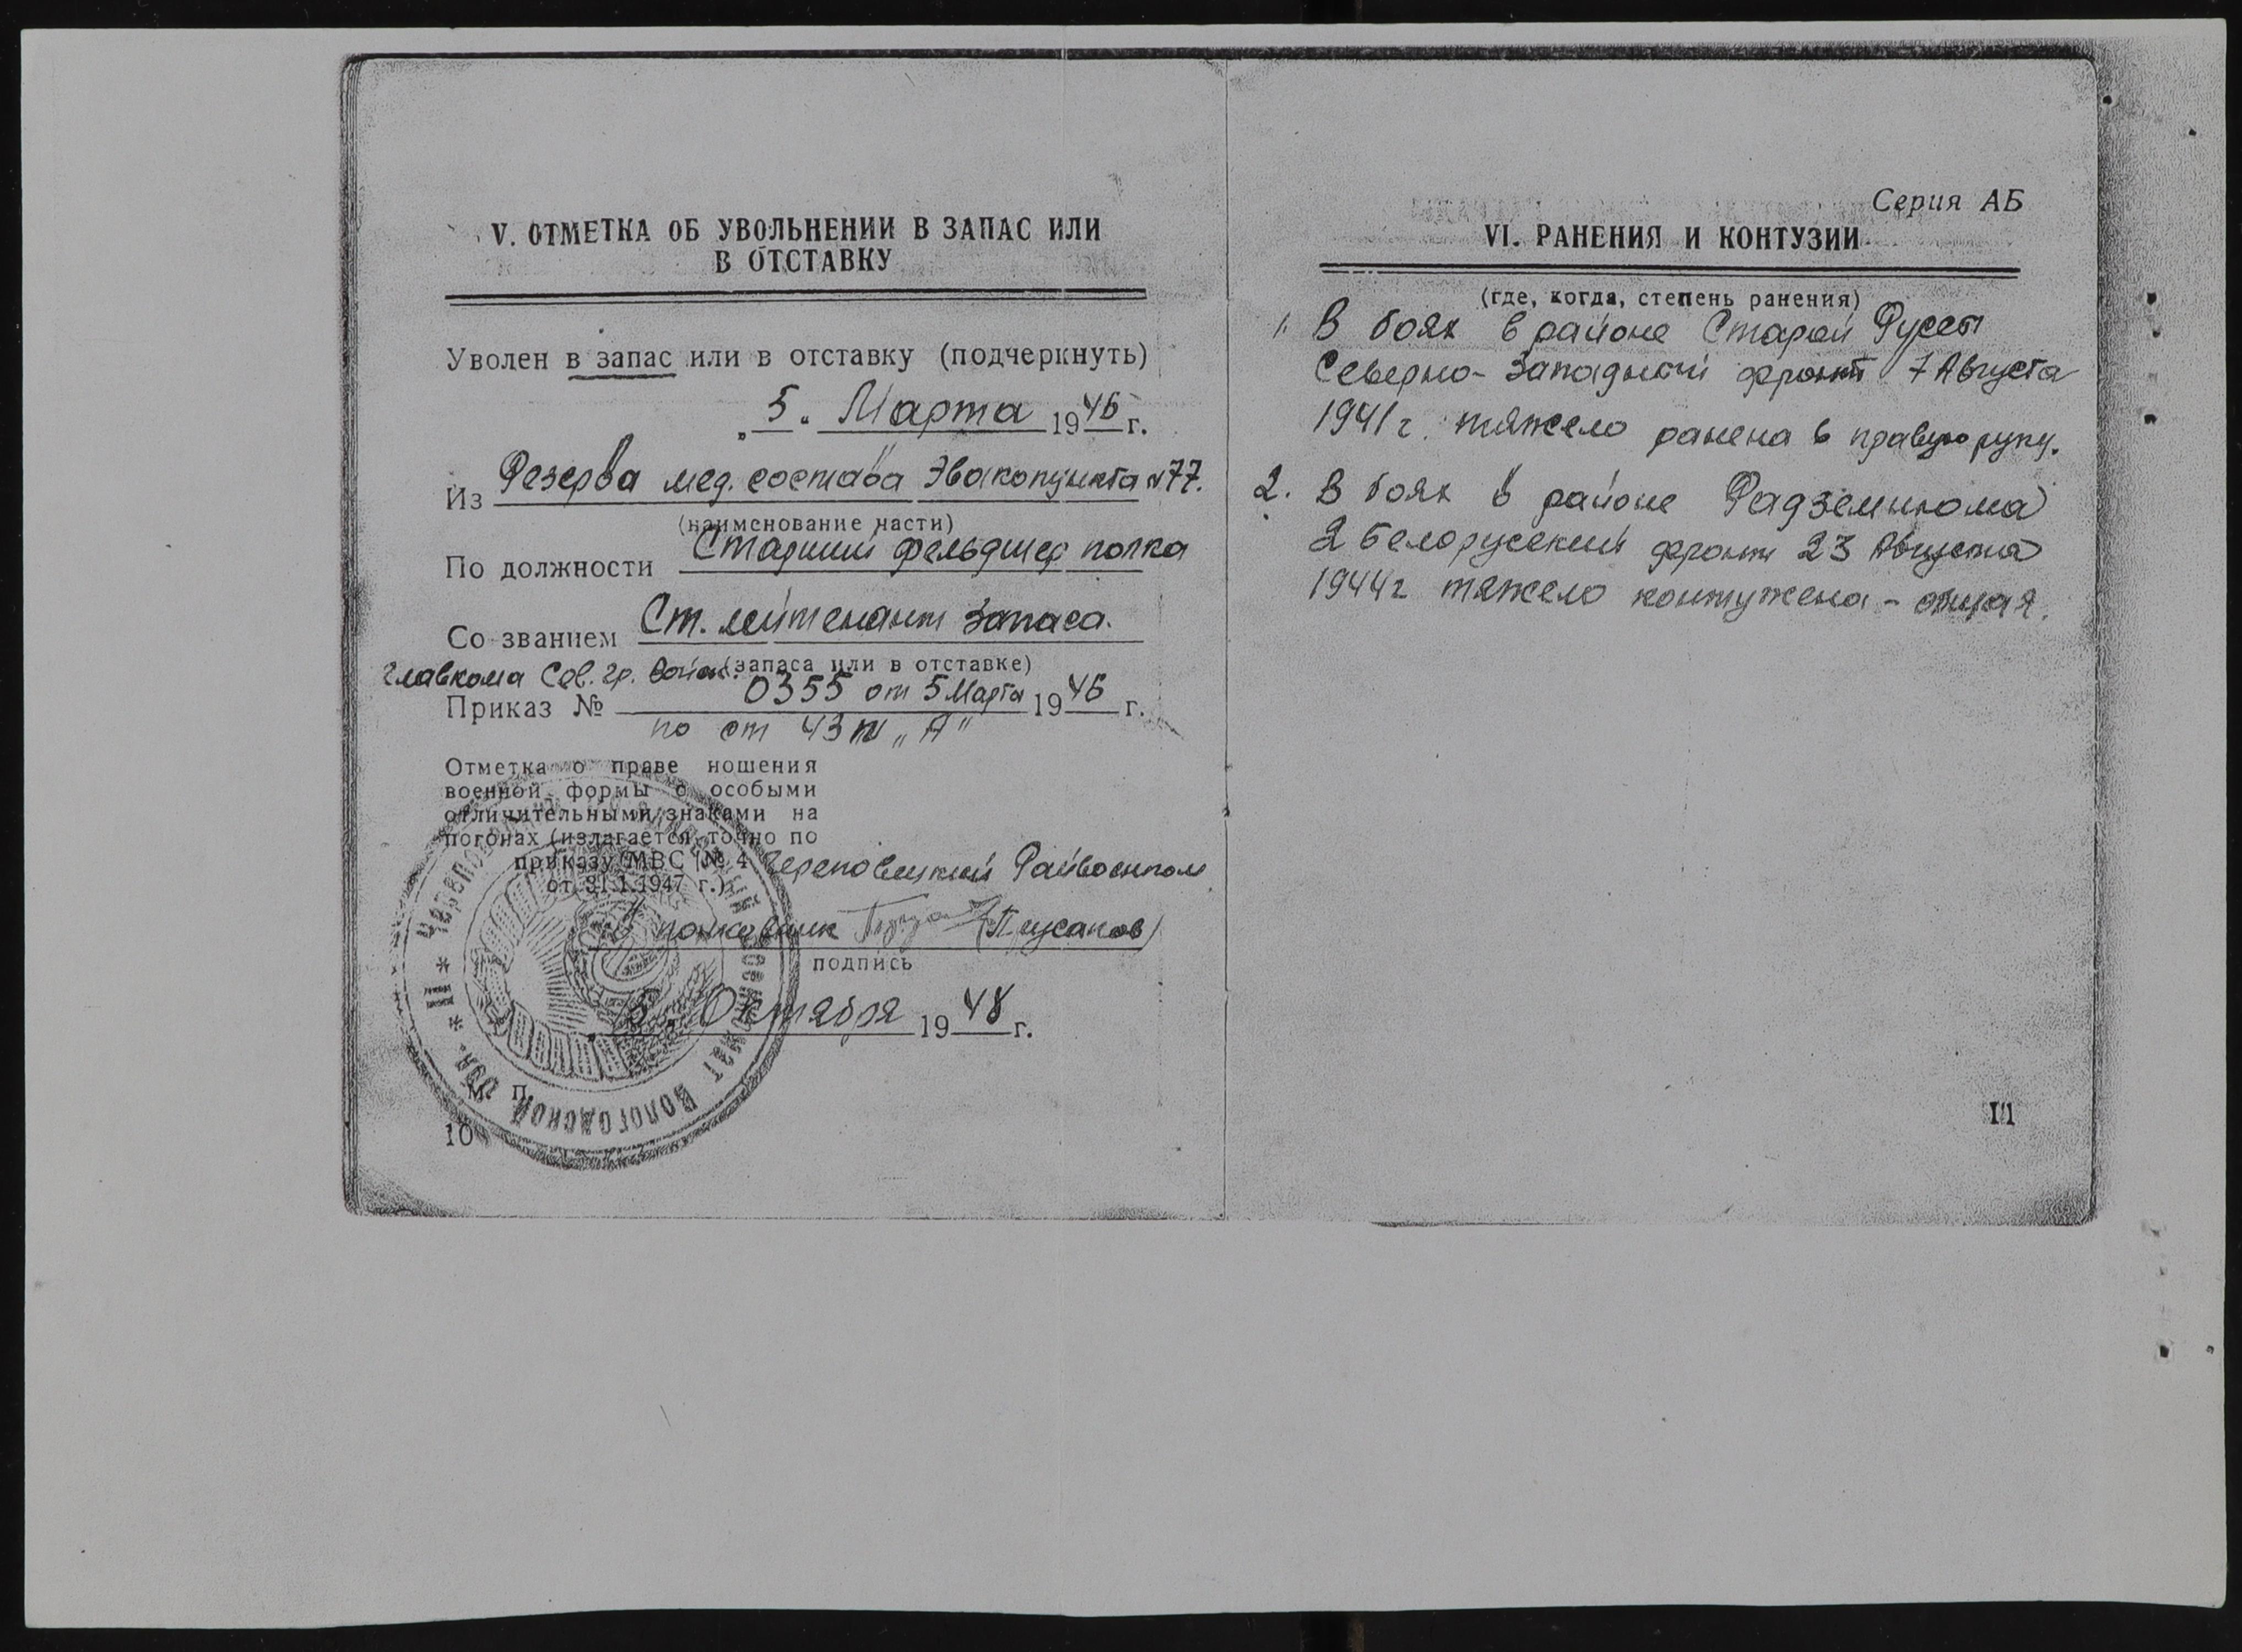 V. ОТМЕТКА ОБ УВОЛЬНЕНИИ В ЗАПАС ИЛИ
В ОТСТАВКУ
Уволен в запас или в отставку (подчеркнуть)
„5" Марта 1946 г.
Из Резерва мед. состава Эвакопункта №77.
(наименование части)
По должности Старший фельдшер полка
Со званием Ст. лейтенант запаса.
(запаса или в отставке)
Главкома Сов. гр. войск.
Приказ № 0355 от 5 Марта 1946 г.
по ст 43 п „А"
Отметка о праве ношения
военной формы с особыми
отличительными знаками на
погонах (излагается точно по
приказу МВС № 4
от 31.1.1947 г.)
Череповецкий Райвоенком
полковник (Пусанов)
подпись
Октября 1948 г.
М. П.
10
Вологодской обл.
Серия АБ
VI. РАНЕНИЯ И КОНТУЗИИ
(где, когда, степень ранения)
1. В боях в районе Старой Руссы
Северно-Западный фронт 7 Августа
1941 г. тяжело ранена в правую руку.
2. В боях в районе Радземинома
2 Белорусский фронт 23 Августа
1944 г тяжело контужена - общая.
11